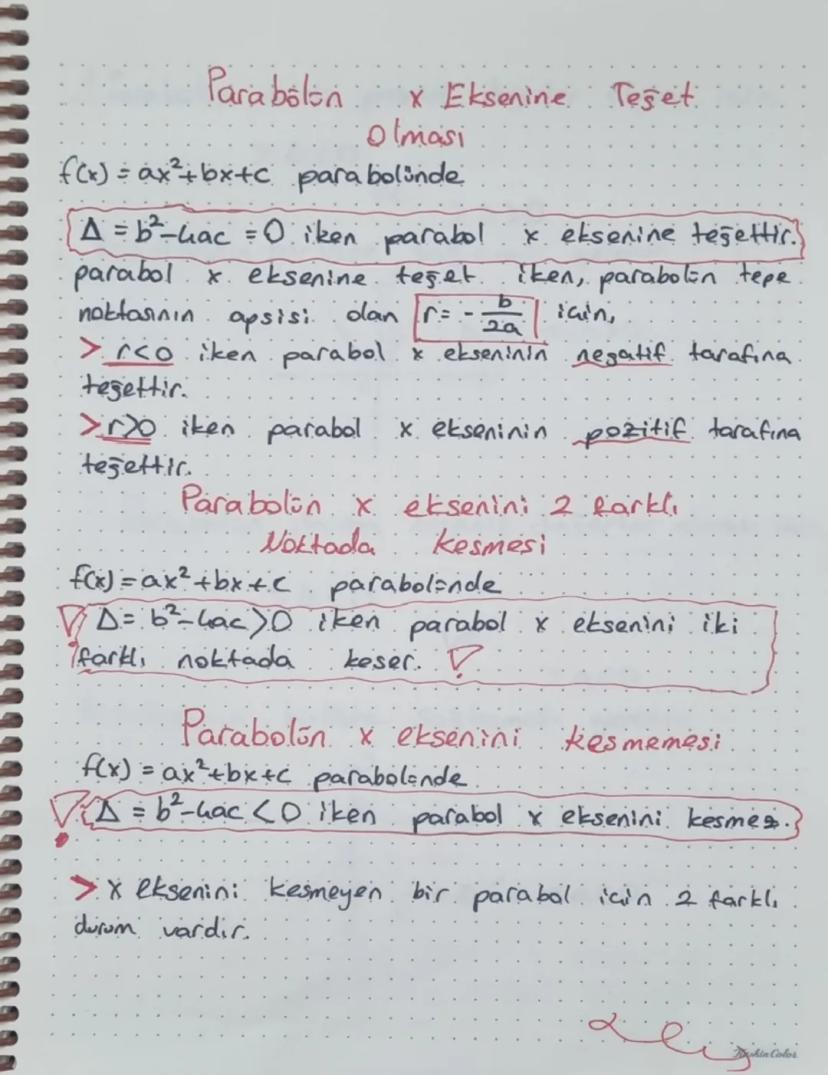 Parabolün x Eksenine Teğet
Olması
f(x) = ax²+bx+c parabolünde
Δ = b²-4ac = 0 iken parabol x eksenine teğettir.
parabol x eksenine teğet iken, parabolün tepe
noktasının apsisi olan r = - b/2a için,
> r<0 iken parabol x ekseninin negatif tarafına
teğettir.
> r>0 iken parabol x ekseninin pozitif tarafına
teğettir.
Parabolün x eksenini 2 farklı
Noktada kesmesi
f(x) = ax²+bx+c parabolünde
Δ = b²-4ac > 0 iken parabol x eksenini iki
farklı noktada keser.
Parabolün x eksenini kesmemesi
f(x) = ax²+bx+c parabolünde
Δ = b²-4ac < 0 iken parabol x eksenini kesmez.
> x eksenini kesmeyen bir parabol için 2 farklı
durum vardır.